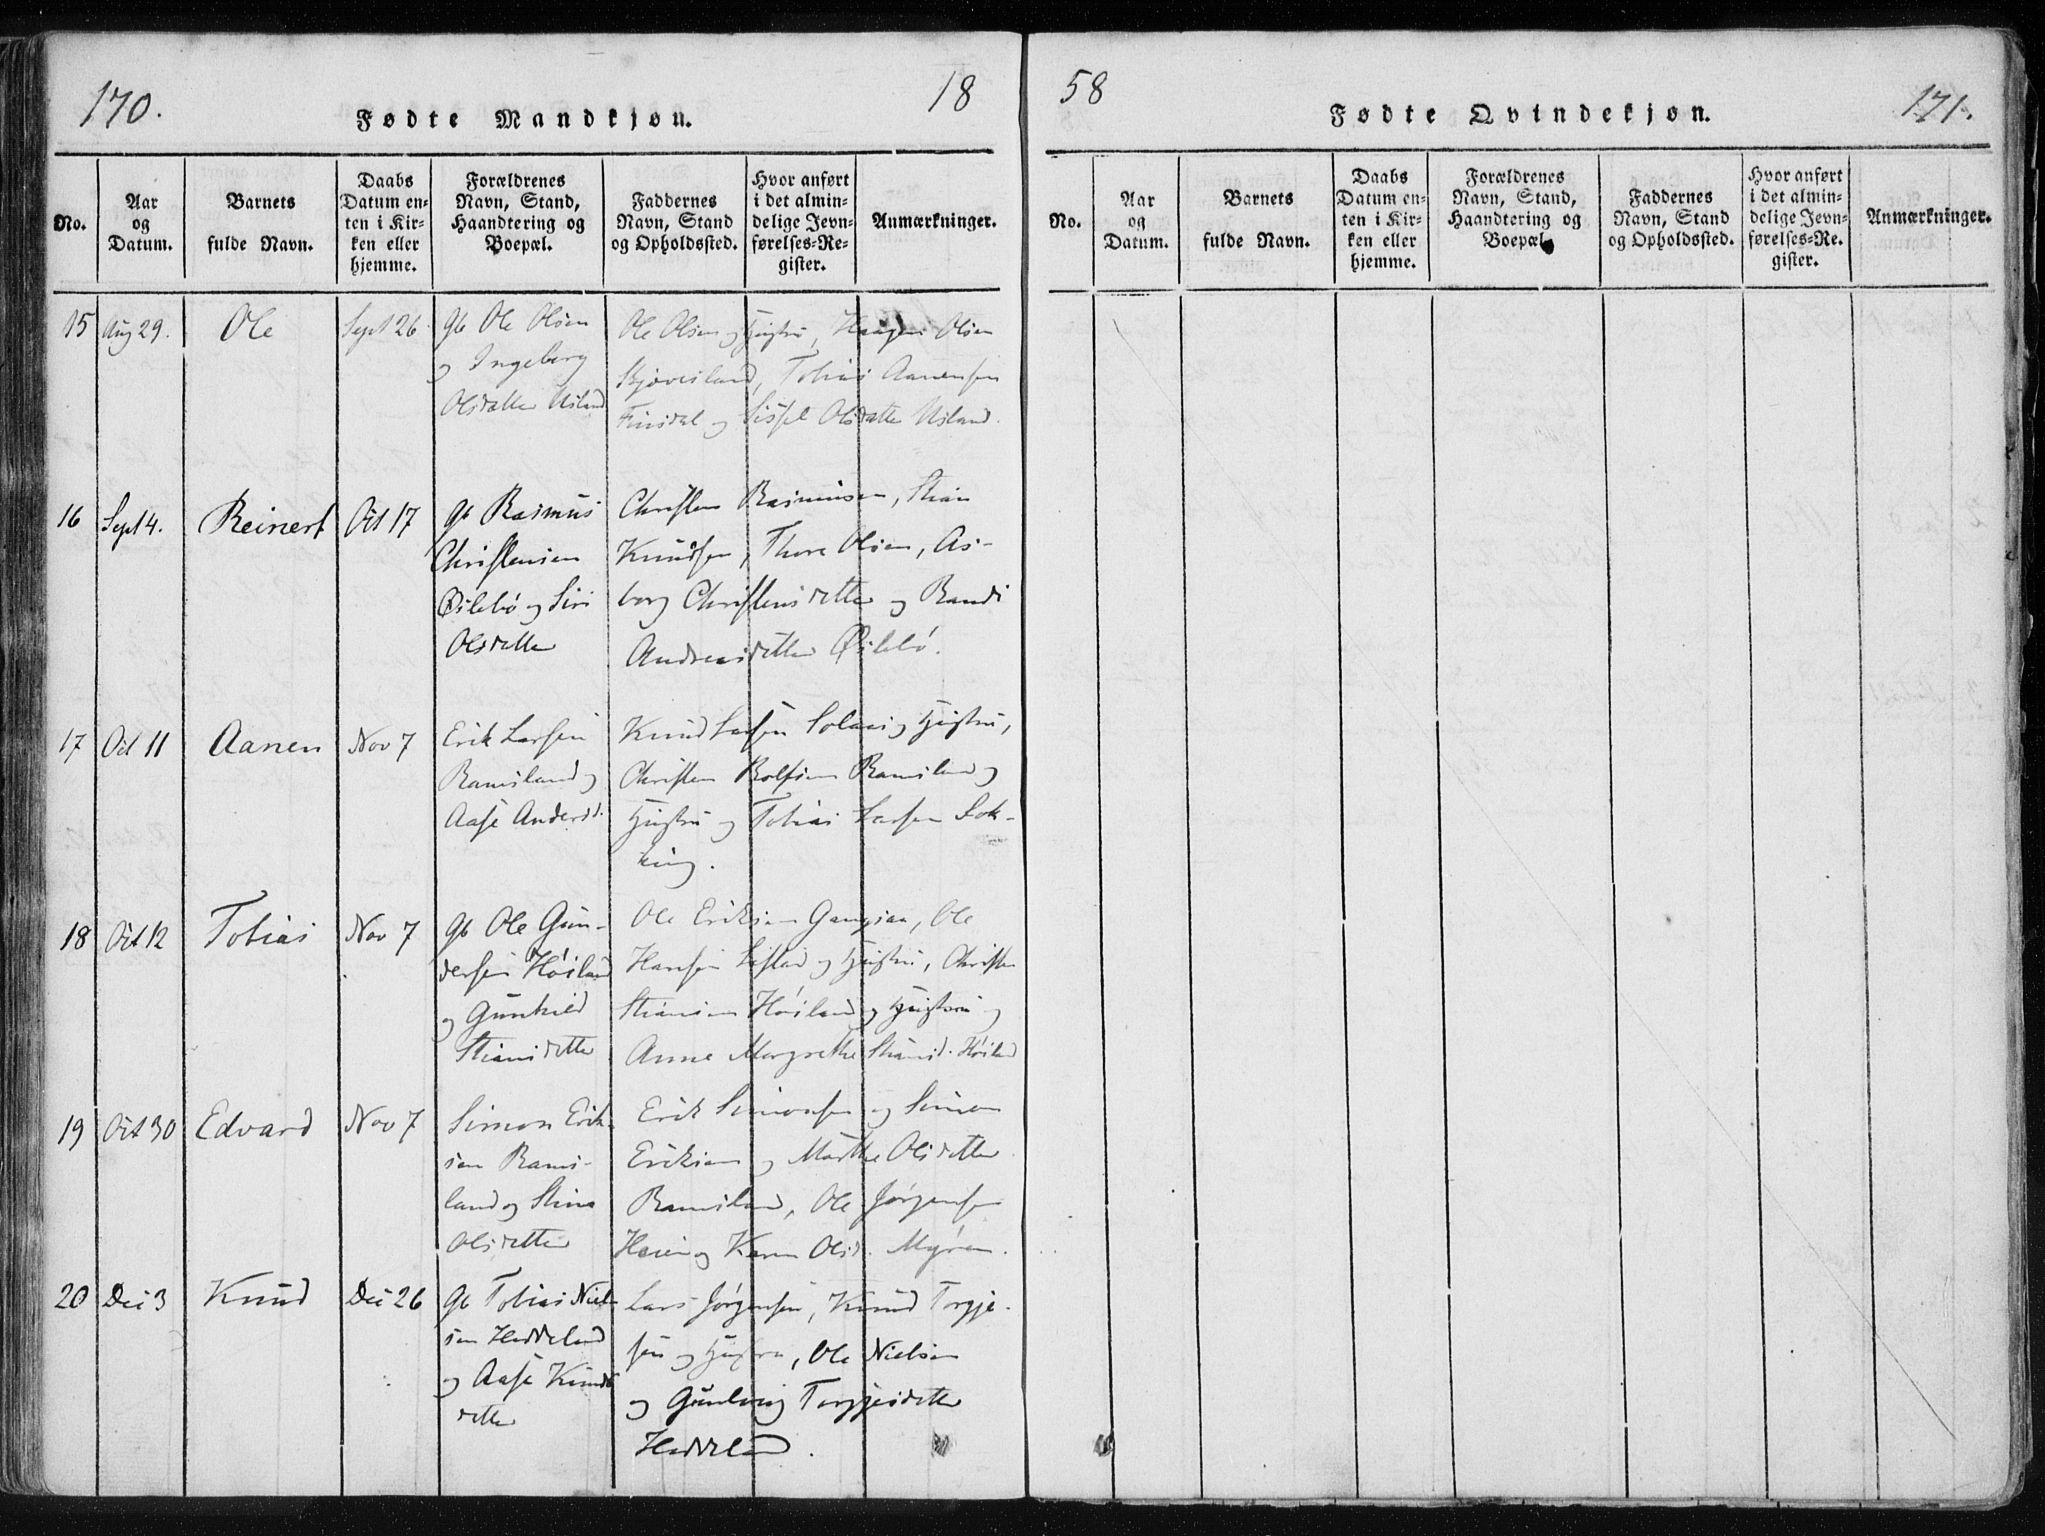 170.
18
Fødte Mandkjøn.
No.
Aar
og
Datum.
Barnets
fulde Navn.
Daabs
Datum en-
ten i Kir-
ken eller
hjemme.
Forældrenes
Navn, Stand,
Haandtering og
Boepæl.
Faddernes
Navn, Stand
og Opholdssted.
Hvor anført
i det almin-
delige Jevn-
førelses-Re-
gister.
Anmærkninger.
15
Aug 29.
Ole
Sept 26
Gb Ole Olsen
og Ingeborg
Olsdatter Usland
Ole Olsen og Hustru, Olsen
Bjøvesland, Tobias Aanensen
Finsdal og Sissel Olsdatter Usland.
16
Sept 4.
Reinert
Oct 17
Gb Rasmus
Christensen
Øilebø og Siri
Olsdatter
Christen Rasmussen, Stian
Knudsen, Thore Olsen, As-
borg Christensdatter og Randi
Andreasdatter Øilebø.
17
Oct 11
Aanen
Nov 7
Erik Larsen
Ramsland og
Aase Andersd.
Knud Larsen og Hustru,
Christen Rolfsen Ramsland og
Hustru og Tobias Larsen Lok-
king.
18
Oct 12
Tobias
Nov 7
Gb Ole Gun-
dersen Høiland
og Gunhild
Stiansdatter
Ole Eriksen, Ole
Hansen og Hustru, Christen
Stiansen Høiland og Hustru og
Anne Margrethe Stiansd. Høiland
19
Oct 30
Edvard
Nov 7
Simon Erik-
sen Rams-
land og Stina
Olsdatter
Erik Simonsen og Simon
Eriksen og Marthe Olsdatter
Ramsland, Ole Jørgensen
Heien og Karen Olsd. Myren.
20
Dec 3
Knud
Dec 26
Gb Tobias Niel-
sen Heddeland
og Aase Knuds
datter
Lars Jørgensen, Knud Torgje-
sen og Hustru, Ole Nielsen
og Gunborg Torgjesdatter
Heddeland.
58
171.
Fødte Qvindekjøn.
No.
Aar
og
Datum.
Barnets
fulde Navn.
Daabs
Datum en-
ten i Kir-
ken eller
hjemme.
Forældrenes
Navn, Stand,
Haandtering og
Boepæl.
Faddernes
Navn, Stand
og Opholdssted.
Hvor anført
i det almin-
delige Jevn-
førelses-Re-
gister.
Anmærkninger.